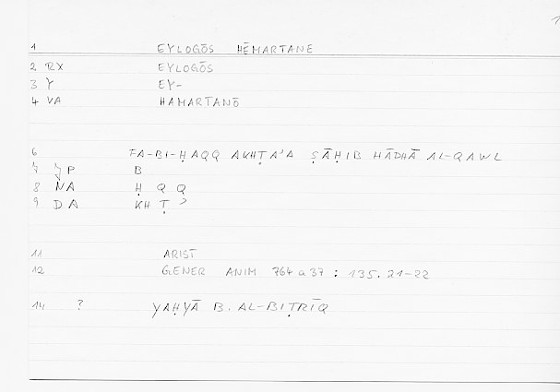 1 EYLOGŌS HĒMARTANE
2 RX EYLOGŌS
3 Y EY-
4 VA HAMARTANŌ
6 FA-BI-ḤAQQ AKHṬAʾA ṢĀḤIB HĀDHĀ AL-QAWL
7 P B
8 NA Ḥ Q Q
9 DA KH Ṭ ʾ
11 ARIST
12 GENER ANIM 764 a 37 : 135.21-22
14 ? YAḤYĀ B. AL-BIṬRĪQ